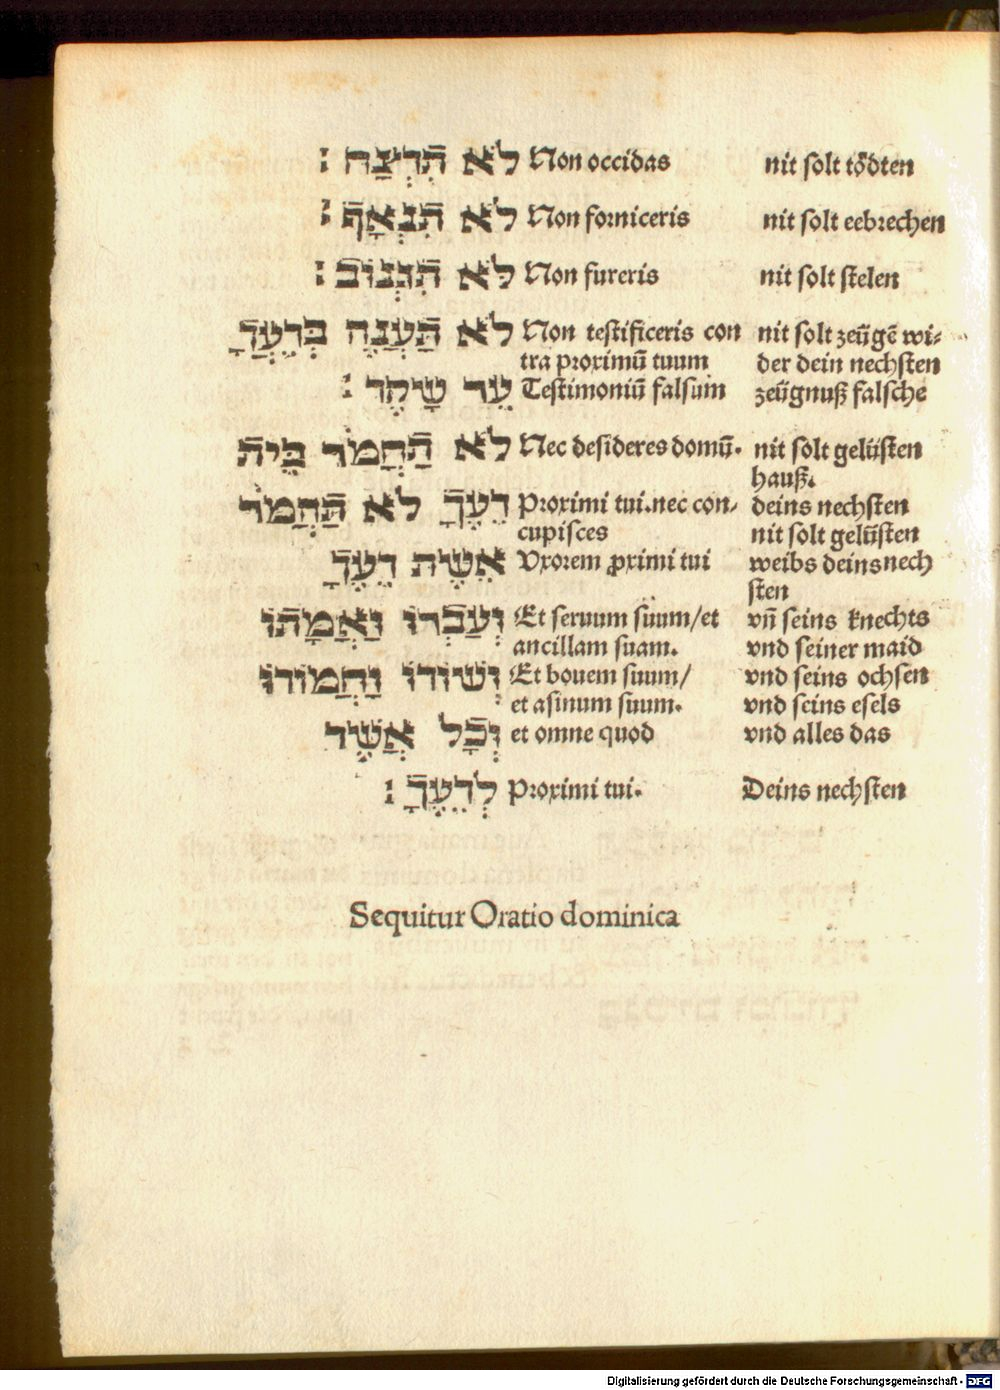 לֹא תִּרְצַח׃ Non occidas nit ſolt tödten
לֹא תִּנְאָף׃ Non forniceris nit ſolt eebrechen
לֹא תִּגְנוֹב׃ Non fureris nit ſolt ſtelen
לֹא תַּעֲנֶה בְּרֵעֲךָ Non teſtificeris con nit ſolt zeügē wi⸗
tra proximū tuum der dein nechſten
עֵד שָׁקֶר׃ Teſtimoniū falsum zeügnuß falſche
לֹא תַּחֲמֹד בֵּית Nec desideres domū. nit ſolt gelüſten
hauß.
רֵעֶךָ לֹא תַּחֲמֹד Proximi tui.nec con⸗ deins nechſten
cupiſces nit ſolt gelüſten
אֵשֶׁת רֵעֶךָ Vxorem ꝓximi tui weibs deins nech
ſten
וְעַבְדּוֹ וַאֲמָתוֹ Et seruum ſuum/et vñ ſeins knechts
ancillam suam. vnd ſeiner maid
וְשׁוֹרוֹ וַחֲמוֹרוֹ Et bouem ſuum/ vnd ſeins ochſen
et aſinum ſuum. vnd ſeins eſels
וְכָל אֲשֶׁר et omne quod vnd alles das
לְרֵעֶךָ׃ Proximi tui. Deins nechſten
Sequitur Oratio dominica
Digitalisierung gefördert durch die Deutsche Forschungsgemeinschaft - DFG